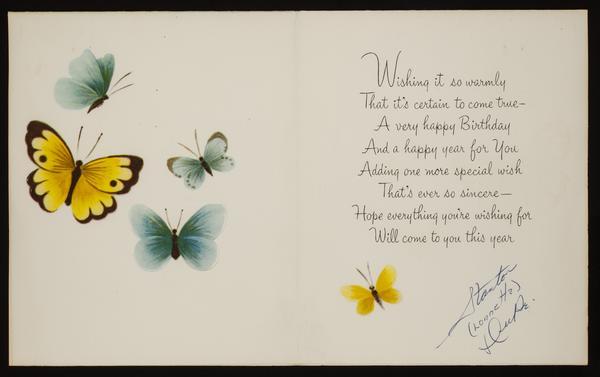 Wishing it so warmly
That it's certain to come true—
A very happy Birthday
And a happy year for You
Adding one more special wish
That's ever so sincere—
Hope everything you're wishing for
Will come to you this year
Stanton